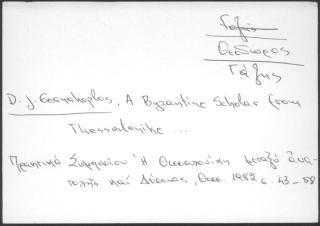 Γαζής
Θεόδωρος
Γάζης
D. J. Geanakoplos, A Byzantine Scholar from
Thessalonike ...
Πρακτικά Συμποσίου "Η Θεσσαλονίκη μεταξύ Ανα-
τολής και Δύσεως, Θεσ. 1982 σ. 43-58